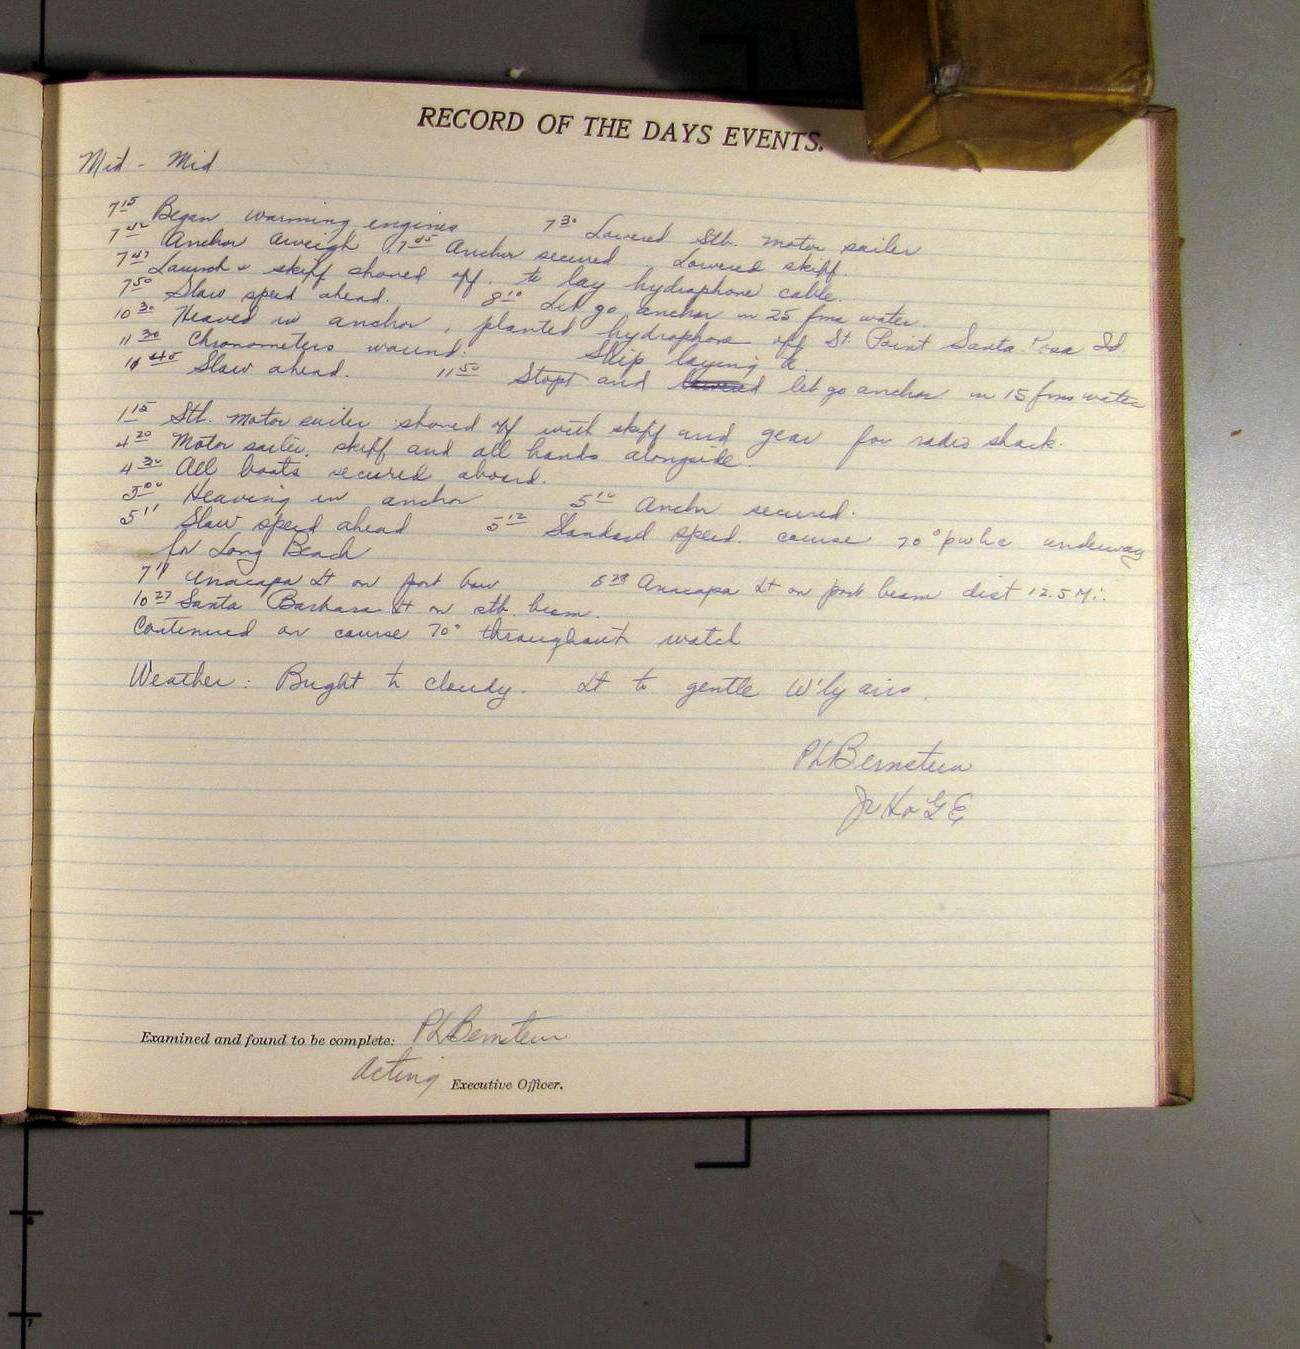 RECORD OF THE DAYS EVENTS.
Mid - Mid
7 15 Began warming engines 7 30 Lowered Stb. motor sailer
7 42 Anchor aweigh. 7 45 Anchor secured. Lowered skiff.
7 47 Launch & skiff shoved off. to lay hydrophone cable.
7 50 Slow speed ahead. 8 10 Let go anchor in 25 fms water.
10 30 Heaved in anchor, planted hydrophone off St. Point Santa Rosa Id
11 30 Chronometers wound. Ship laying to.
11 45 Slow ahead. 11 50 Stopt and let go anchor in 15 fms water
1 15 Stb. motor sailer shoved off with skiff and gear for radio shack.
4 20 Motor sailer, skiff and all hands alongside.
4 30 All boats secured aboard.
5 00 Heaving in anchor 5 10 Anchor secured.
5 11 Slow speed ahead 5 12 Standard speed. course 70° pwhc underway
for Long Beach
7 11 Anacapa Lt on port bow 8 28 Anacapa Lt on port beam dist 12.5 Mi.
10 27 Santa Barbara Lt on stb. beam.
Continued on course 70° throughout watch
Weather: Bright to cloudy. Lt to gentle W'ly airs.
PLBernstein
Jr H & G E
Examined and found to be complete: PLBernstein
Acting Executive Officer.